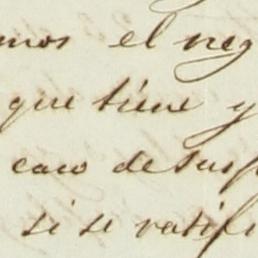 mos el neg
que tiene y
caso de sus
si se ratifi